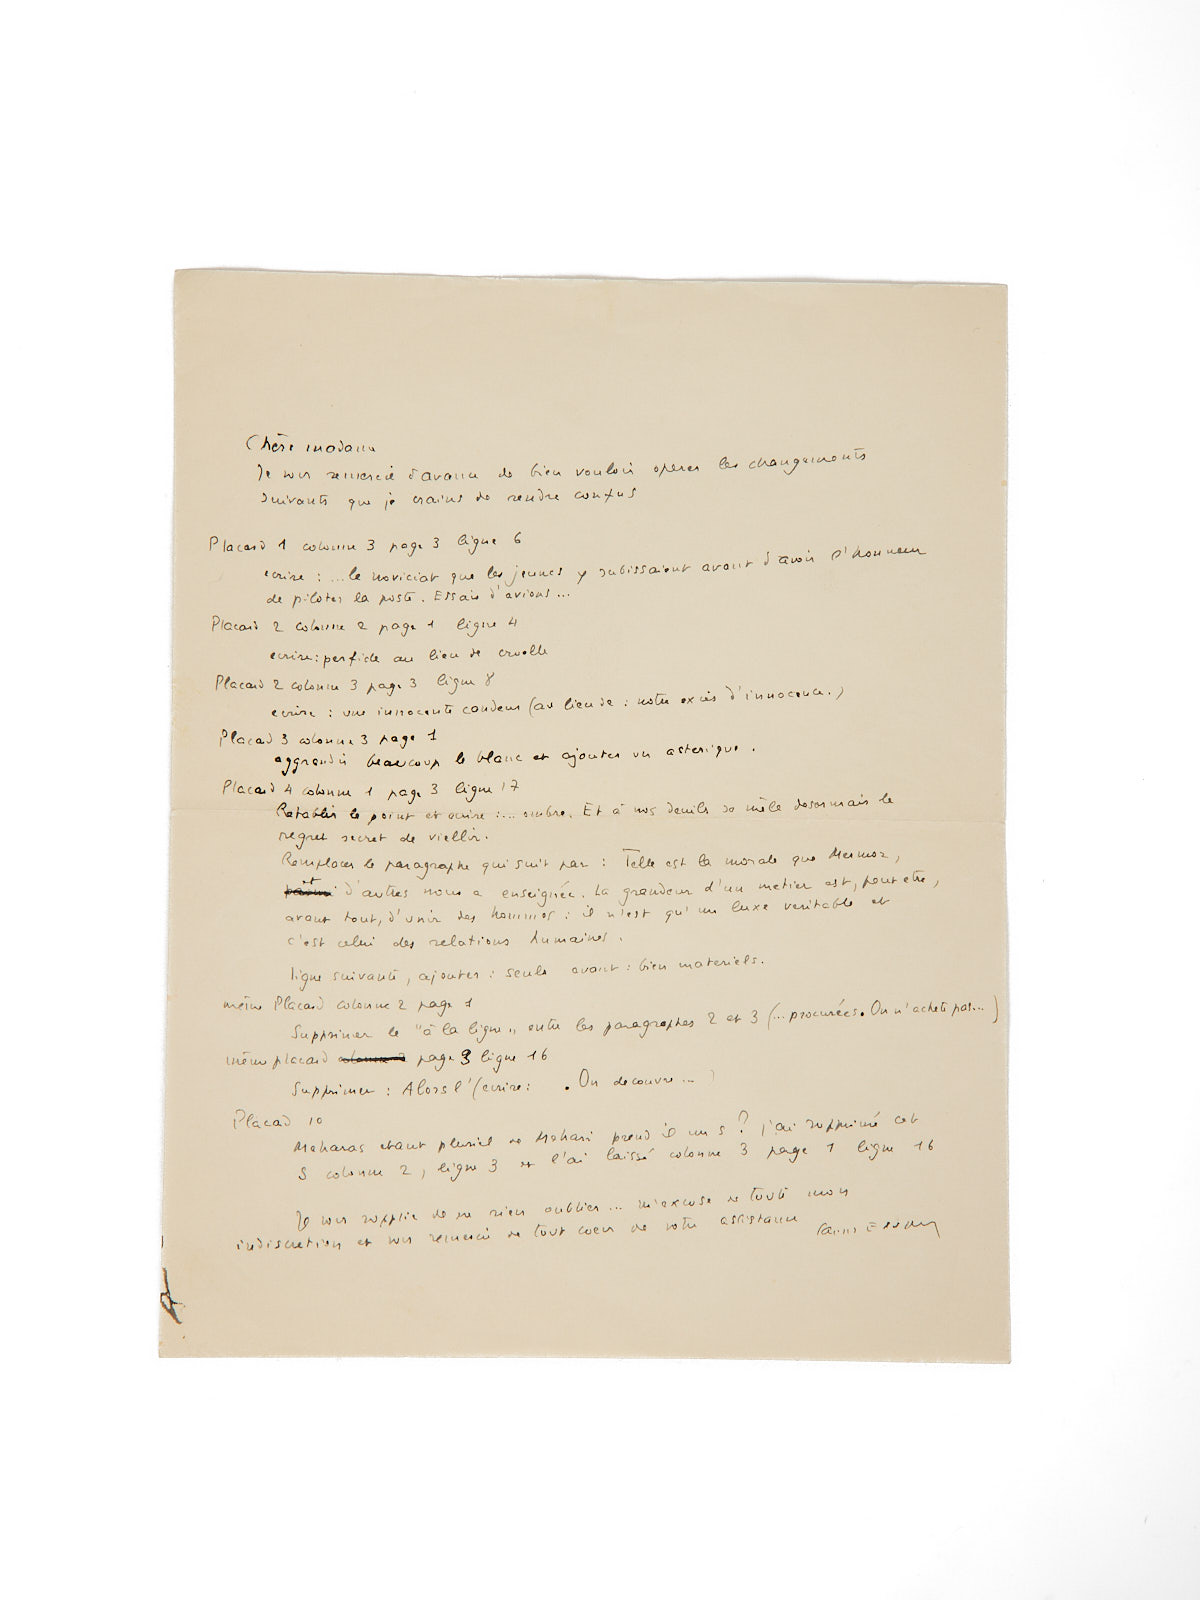 Chère madame
Je vous remercie d'avance de bien vouloir operer les changements
suivants que je crains de rendre confus
Placard 1 colonne 3 page 3 ligne 6
ecrire : ... le noviciat que les jeunes y subissaient avant d'avoir l'honneur
de piloter la poste. Essais d'avions...
Placard 2 colonne 2 page 1 ligne 4
ecrire : perfide au lieu de cruelle
Placard 2 colonne 3 page 3 ligne 8
ecrire : une innocente candeur (au lieu de : notre excès d'innocence.)
Placard 3 colonne 3 page 1
aggrandir beaucoup le blanc et ajouter un asterique .
Placard 4 colonne 1 page 3 ligne 17
Retablir le point et ecrire :... ombre. Et à nos deuils se mêle desormais le
regret secret de viellir.
Remplacer le paragraphe qui suit par : Telle est la morale que Mermoz,
et d'autres nous a enseignée. La grandeur d'un metier est, peut etre,
avant tout, d'unir des hommes : il n'est qu'un luxe veritable et
c'est celui des relations humaines.
ligne suivante, ajouter : seuls avant : bien materiels.
même Placard colonne 2 page 1
Supprimer le "à la ligne" entre les paragraphes 2 et 3 (... procurées. On n'achete pas...)
même placard page 3 ligne 16
Supprimer : Alors l' (ecrire : . On decouvre... )
Placard 10
Meharas etant pluriel de Mehari prend il un s ? j'ai supprimé cet
S colonne 2, ligne 3 et l'ai laissé colonne 3 page 1 ligne 16
Je vous supplie de ne rien oublier... m'excuse de toute mon
indiscretion et vous remercie de tout coeur de votre assistance